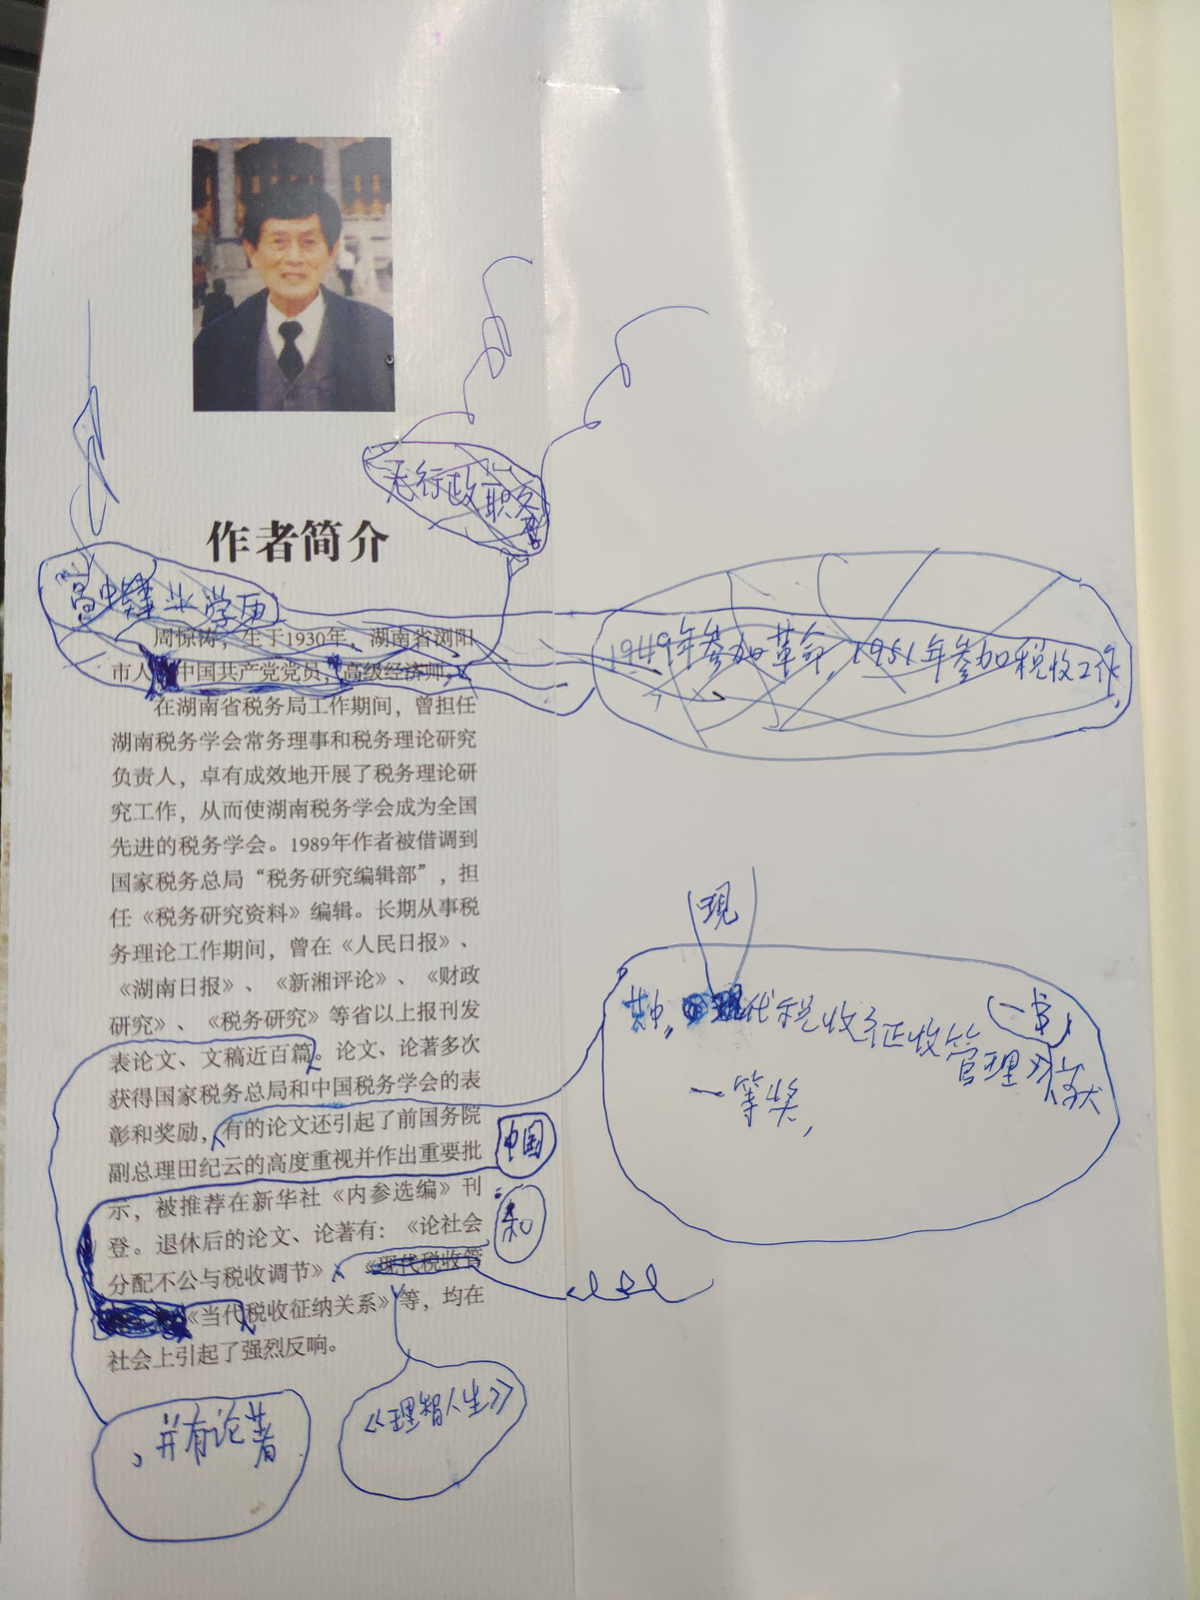 无行政职务
作者简介
高中肄业学历
周惊涛，生于1930年，湖南省浏阳
市人
中国共产党党员，高级经济师。
1949年参加革命，1951年参加税收工作，
在湖南省税务局工作期间，曾担任
湖南税务学会常务理事和税务理论研究
负责人，卓有成效地开展了税务理论研
究工作，从而使湖南税务学会成为全国
先进的税务学会。1989年作者被借调到
国家税务总局“税务研究编辑部”，担
任《税务研究资料》编辑。长期从事税
务理论工作期间，曾在《人民日报》、
《湖南日报》、《新湘评论》、《财政
研究》、《税务研究》等省以上报刊发
表论文、文稿近百篇。论文、论著多次
获得国家税务总局和中国税务学会的表
彰和奖励，有的论文还引起了前国务院
副总理田纪云的高度重视并作出重要批
示，被推荐在新华社《内参选编》刊
登。退休后的论文、论著有：《论社会
分配不公与税收调节》、《现代税收管
《当代税收征纳关系》等，均在
社会上引起了强烈反响。
现
其中，代税收征收管理一书，获
一等奖，
中国
和
，并有论著
《理智人生》